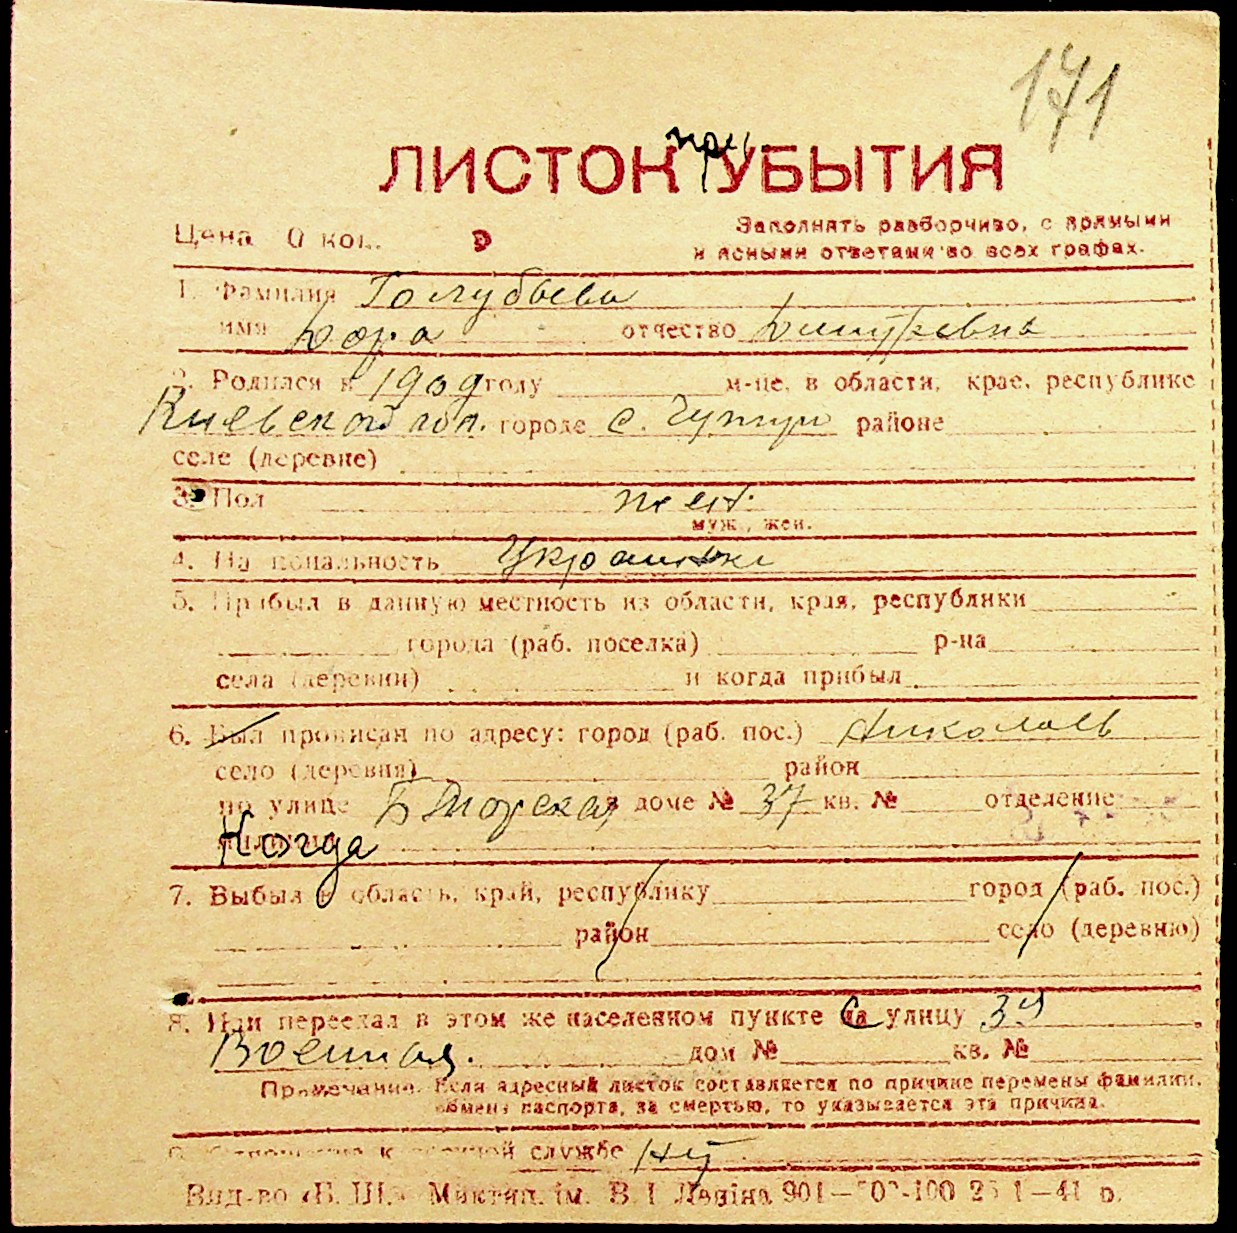 171
при
ЛИСТОК УБЫТИЯ
Цена 0 коп.
Заполнять разборчиво, с прямыми
и ясными ответами во всех графах.
1. Фамилия Голубьева
имя Дора отчество Дмитревна
2. Родился в 1909 году м-це, в области, крае, республике
Киевской городе с. районе
селе (деревне)
3. Пол жен.
муж., жен.
4. Национальность Украинка
5. Прибыл в данную местность из области, края, республики
города (раб. поселка) р-на
села (деревни) и когда прибыл
6. Был прописан по адресу: город (раб. пос.) Николаев
село (деревня) район
по улице Б Морская в доме № 37 кв. № отделение
милиции Когда
7. Выбыл в область, край, республику город (раб. пос.)
район село (деревню)
8. Или переехал в этом же населенном пункте на С улицу 39
Военная. дом № кв. №
Примечание. Если адресный листок составляется по причине перемены фамилии,
обмена паспорта, за смертью, то указывается эта причина.
9. Отношение к военной службе
Вид-во «Б. Ш.» Миктип. ім. В. І. Леніна 901— -100 25 1—41 р.